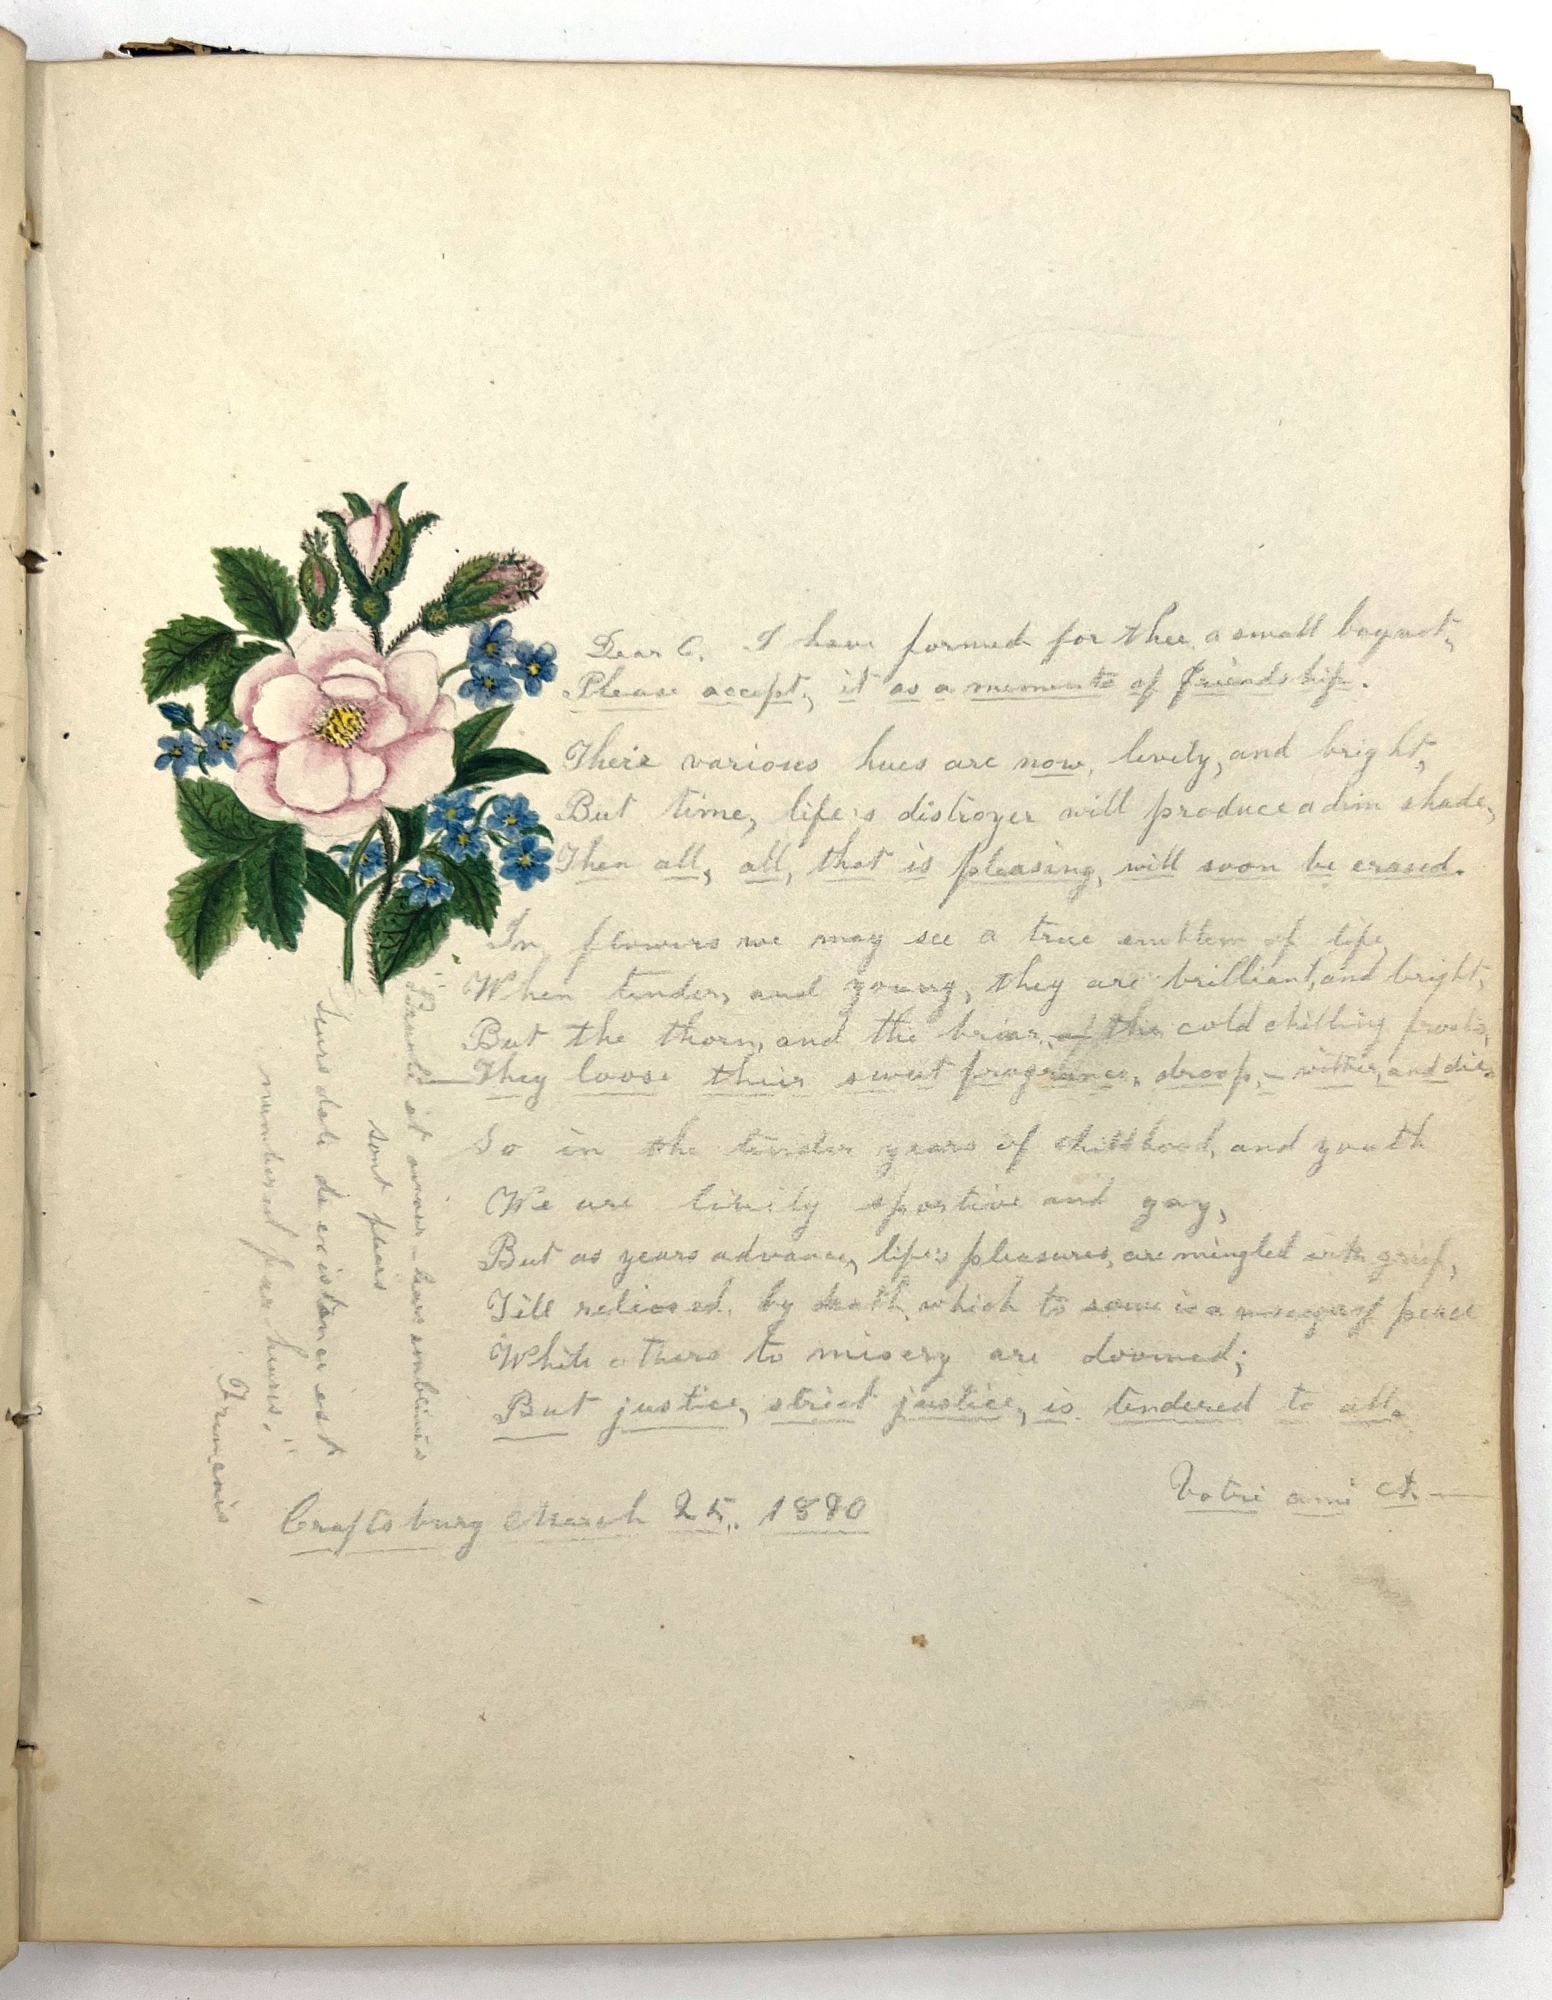 Dear C. I have formed for thee a small boquet,
Please accept, it as a memento of friendship.
Their various hues are now, lively, and bright,
But time, life's distroyer will produce a dim shade,
Then all, all, that is pleasing, will soon be erased.
In flowers we may see a true emblem of life,
When tender, and young, they are brilliant, and bright,
But the thorn, and the briar, of the cold chilling frosts,
They loose their sweet fragrance, droop, – wither, and die.
So in the tender years of childhood, and youth
We are lively sportive and gay,
But as years advance, life's pleasures, are mingled with grief,
Till relieved, by death, which to some is a peace
While others to misery are doomed;
But justice, strict justice, is tendered to all.
Votre ami A –
Craftsbury March 25, 1880
"Beauté et amour – leurs emblemes
sont fleurs
Leurs date de existance est
numbered par heurs,"